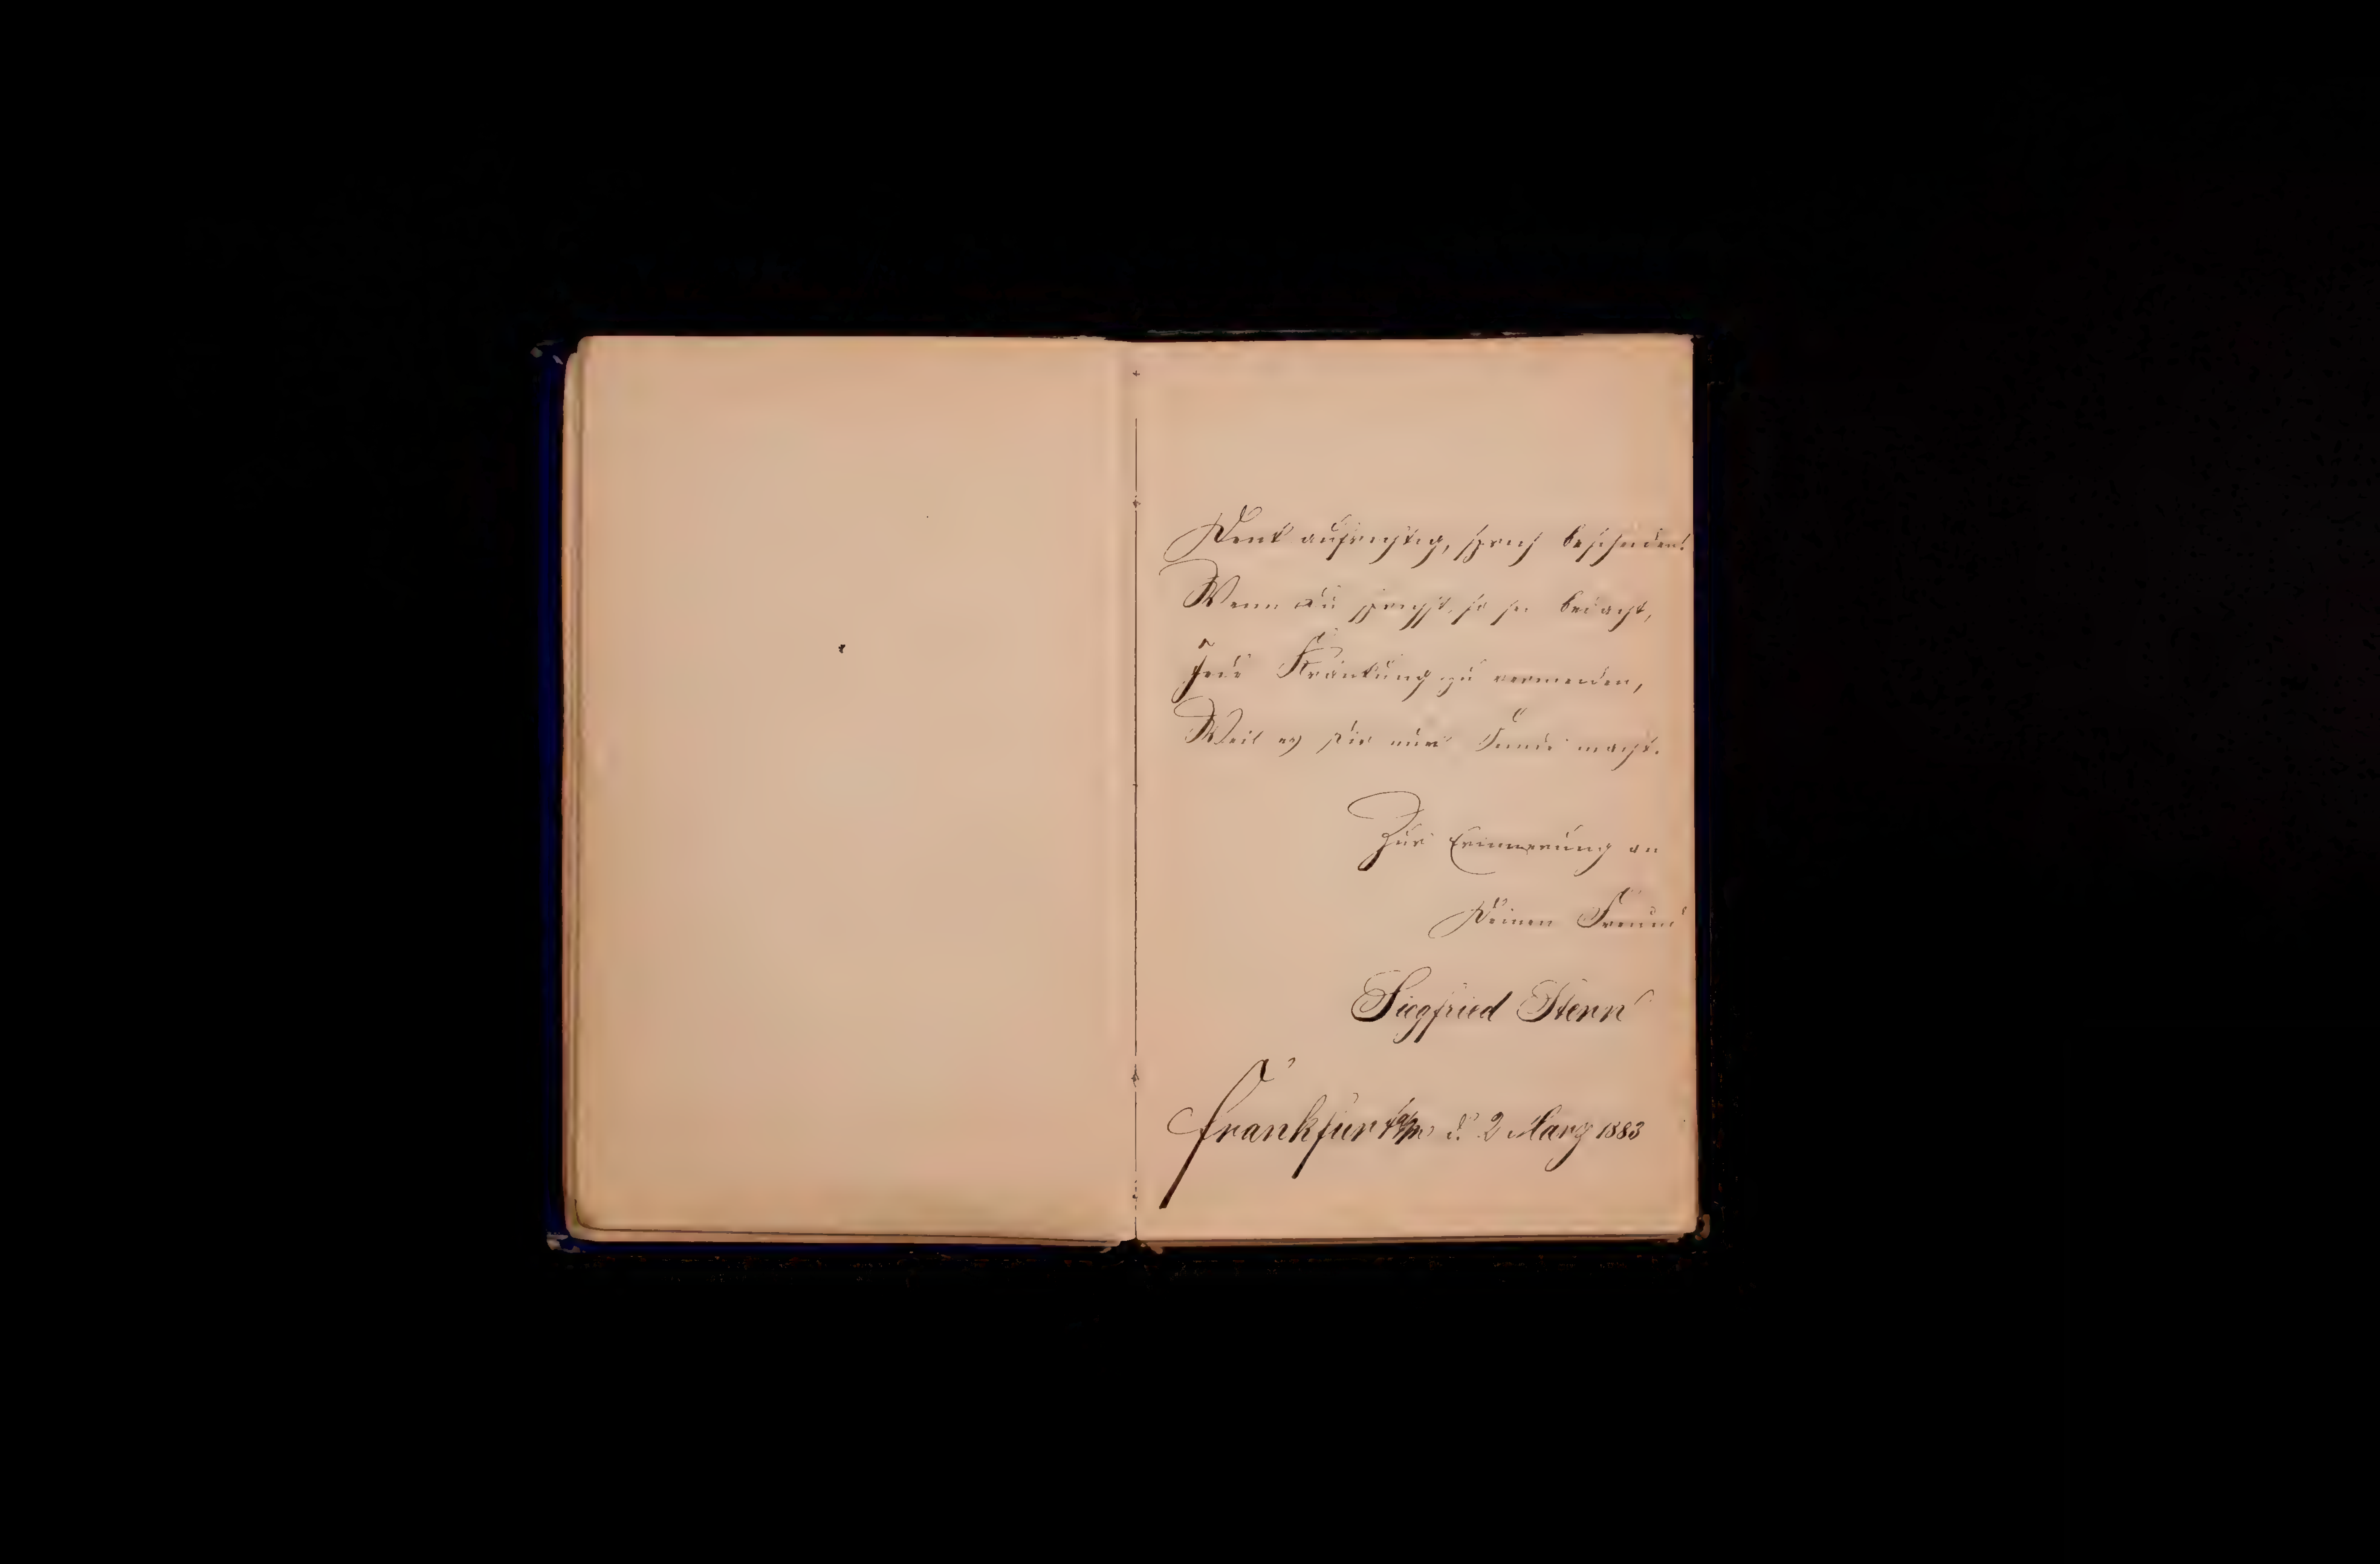 Denk aufrichtig, sprich bescheiden!
Wenn du sprichst, so sei bedacht,
Jede Kränkung zu vermeiden,
Weil es Dir nur Feinde macht.
Zur Erinnerung an
Deinen Freund
Siegfried Stern
Frankfurt a/m d. 2 März 1883